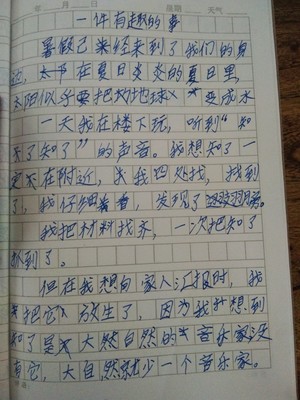 年 月 日 星期 天气
一件有趣的事
暑假已来经来到了我们的身
边,在夏日炎炎的夏日里,
太阳似乎要把地球变成水
一天我在楼下玩,听到“知
了知了”的声音。我想知了一
定在附近,我四处找,找到
了,我仔细看,发现了
我把材料找齐,一次把知了
抓到了。
但在我想向家人汇报时,我
把它放生了,因为我想到
知了是大然自然的音乐家没
有它,大自然就少一个音乐家。